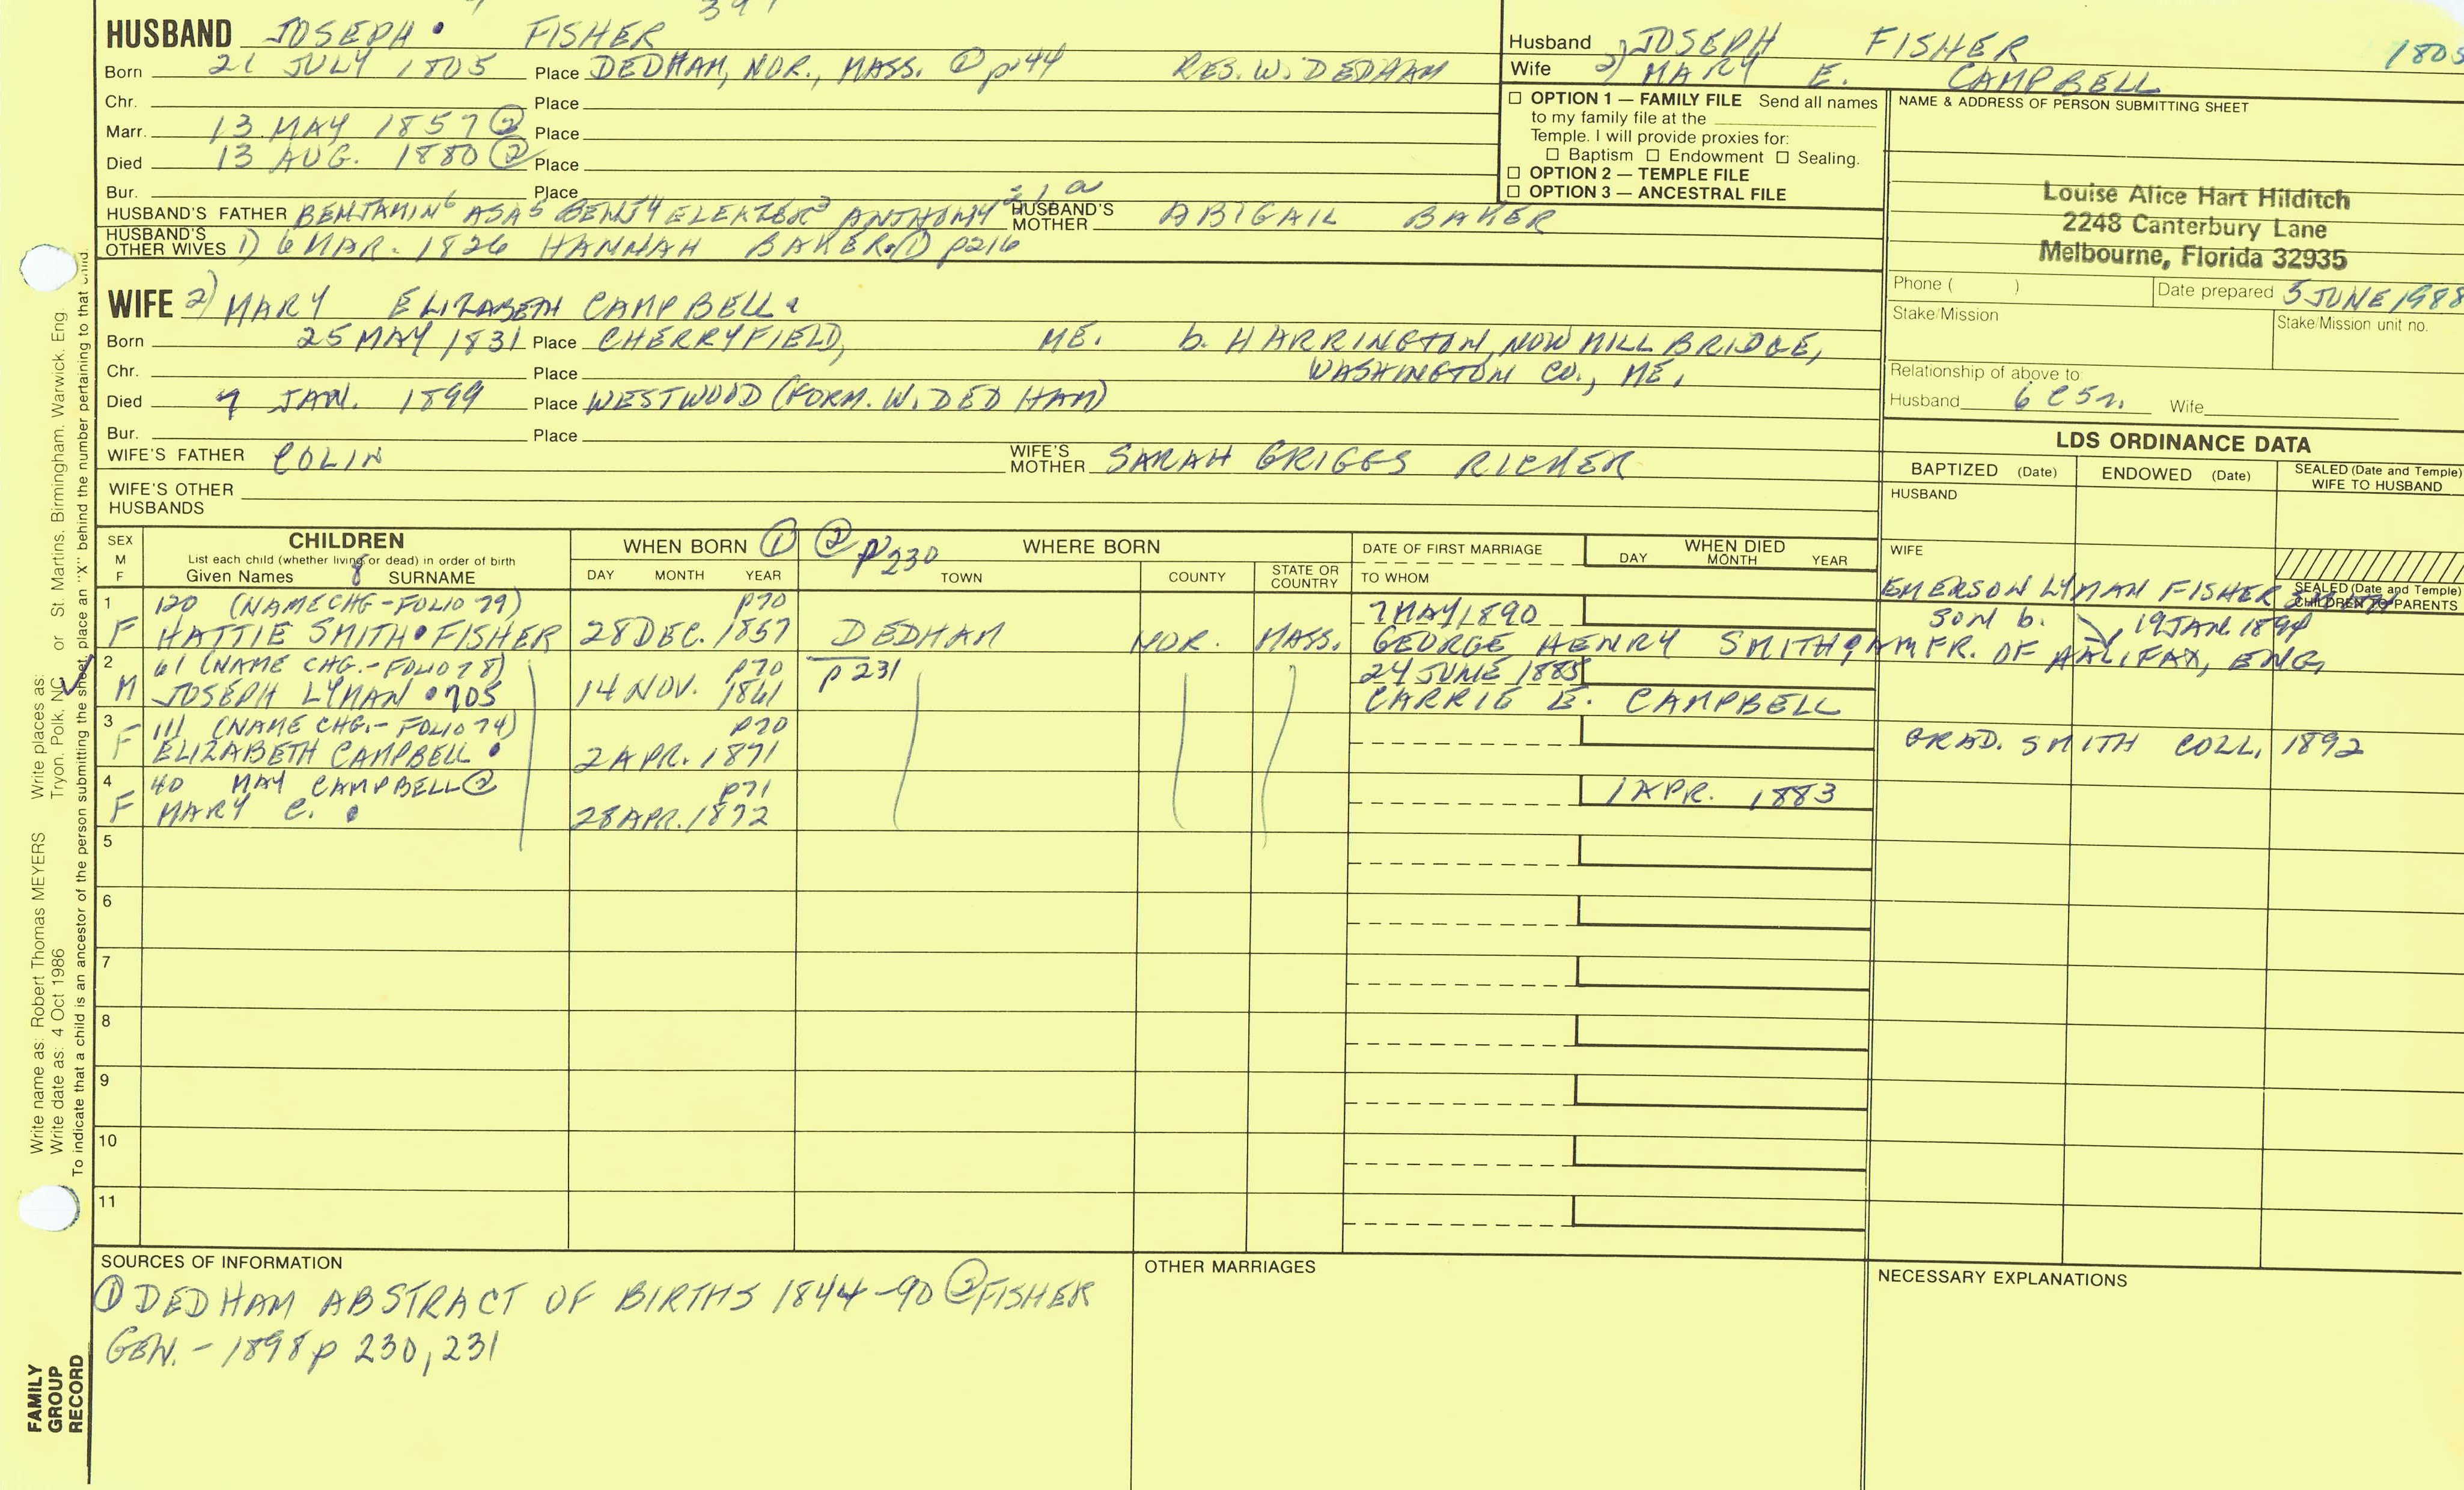 HUSBAND JOSEPH FISHER
Born 21 JULY 1805 Place DEDHAM, NOR., MASS. ① p144 RES. W. DEDHAM
Chr. Place
Marr. 13 MAY 1857 ② Place
Died 13 AUG. 1880 ② Place
Bur. Place
HUSBAND'S FATHER BENJAMIN⁶ ASA⁵ BENJ⁴ ELEAZER³ ANTHONY 2,1 a HUSBAND'S MOTHER ABIGAIL BAKER
HUSBAND'S OTHER WIVES 1) 6 MAR. 1826 HANNAH BAKER ① p216
WIFE 2) MARY ELIZABETH CAMPBELL
Born 25 MAY 1831 Place CHERRYFIELD, ME. b. HARRINGTON, NOW MILLBRIDGE,
WASHINGTON CO., ME.
Chr. Place
Died 9 JAN. 1899 Place WESTWOOD (FORM. W. DEDHAM)
Bur. Place
WIFE'S FATHER COLIN WIFE'S MOTHER SARAH GRIGGS RICKER
WIFE'S OTHER HUSBANDS
Husband 2) JOSEPH FISHER 1805
Wife 2) MARY E. CAMPBELL
☐ OPTION 1 — FAMILY FILE Send all names
to my family file at the
Temple. I will provide proxies for:
☐ Baptism ☐ Endowment ☐ Sealing.
☐ OPTION 2 — TEMPLE FILE
☐ OPTION 3 — ANCESTRAL FILE
NAME & ADDRESS OF PERSON SUBMITTING SHEET
Louise Alice Hart Hilditch
2248 Canterbury Lane
Melbourne, Florida 32935
Phone ( ) Date prepared 5 JUNE 1988
Stake/Mission Stake/Mission unit no.
Relationship of above to:
Husband 6 C 5 r. Wife
LDS ORDINANCE DATA
BAPTIZED (Date) ENDOWED (Date) SEALED (Date and Temple) WIFE TO HUSBAND
HUSBAND
WIFE
SEALED (Date and Temple) CHILDREN TO PARENTS
SEX M F
CHILDREN
List each child (whether living or dead) in order of birth
Given Names 8 SURNAME
WHEN BORN ① ② p230 WHERE BORN
DAY MONTH YEAR TOWN COUNTY STATE OR COUNTRY
DATE OF FIRST MARRIAGE
TO WHOM
WHEN DIED
DAY MONTH YEAR
1 120 (NAME CHG-FOLIO 79) p70 7 MAY 1890
F HATTIE SMITH FISHER 28 DEC. 1857 DEDHAM NOR. MASS. GEORGE HENRY SMITH, A MFR. OF HALIFAX, ENG.
EMERSON LYMAN FISHER
SON b. 19 JAN. 1894
2 61 (NAME CHG.-FOLIO 78) p70 p231 24 JUNE 1885
M JOSEPH LYMAN 705 14 NOV. 1861 CARRIE E. CAMPBELL
3 111 (NAME CHG.- FOLIO 74) p70
F ELIZABETH CAMPBELL 2 APR. 1871 GRAD. SMITH COLL. 1892
4 40 MAY CAMPBELL ② p71 1 APR. 1883
F MARY C. 28 APR. 1872
5
6
7
8
9
10
11
SOURCES OF INFORMATION
① DEDHAM ABSTRACT OF BIRTHS 1844-90 ② FISHER
GEN. - 1898 p 230, 231
OTHER MARRIAGES
NECESSARY EXPLANATIONS
Write name as: Robert Thomas MEYERS Write places as: Tryon, Polk, NC or St. Martins, Birmingham, Warwick, Eng
Write date as: 4 Oct 1986
To indicate that a child is an ancestor of the person submitting the sheet, place an "X" behind the number pertaining to that child.
FAMILY
GROUP
RECORD